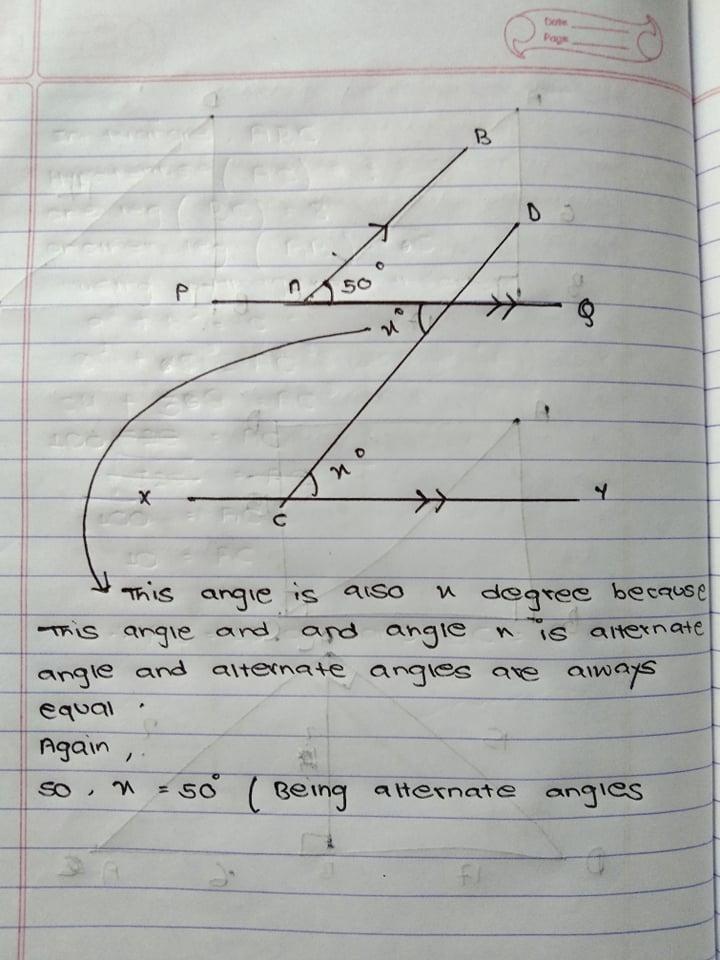 Date
Page
B
D
P
A
50°
Q
x°
x°
X
Y
C
This angle is also x degree because
This angle and and angle x° is alternate
angle and alternate angles are always
equal.
Again,
so, x = 50° (Being alternate angles